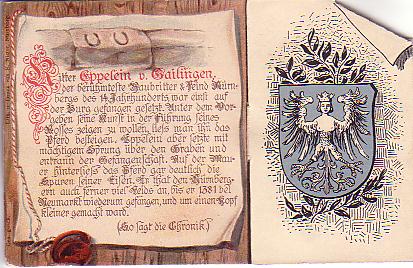 Ritter Eppelein v. Gailingen,
der berühmteste Raubritter & Feind Nürn-
bergs des 14. Jahrhunderts, war einst auf
der Burg gefangen gesetzt. Unter dem Vor-
geben seine Kunst in der Führung seines
Rosses zeigen zu wollen, liess man ihn das
Pferd besteigen. Eppelein aber setzte mit
mächtigem Sprung über den Graben und
entrann der Gefangenschaft. Auf der Mau-
er hinterliess das Pferd gar deutlich die
Spuren seiner Eisen. Er that den Nürnberg-
ern auch ferner viel Leids an, bis er 1381 bei
Neumarkt wiederum gefangen, und um einen Kopf
kleiner gemacht ward.
(So sagt die Chronik.)